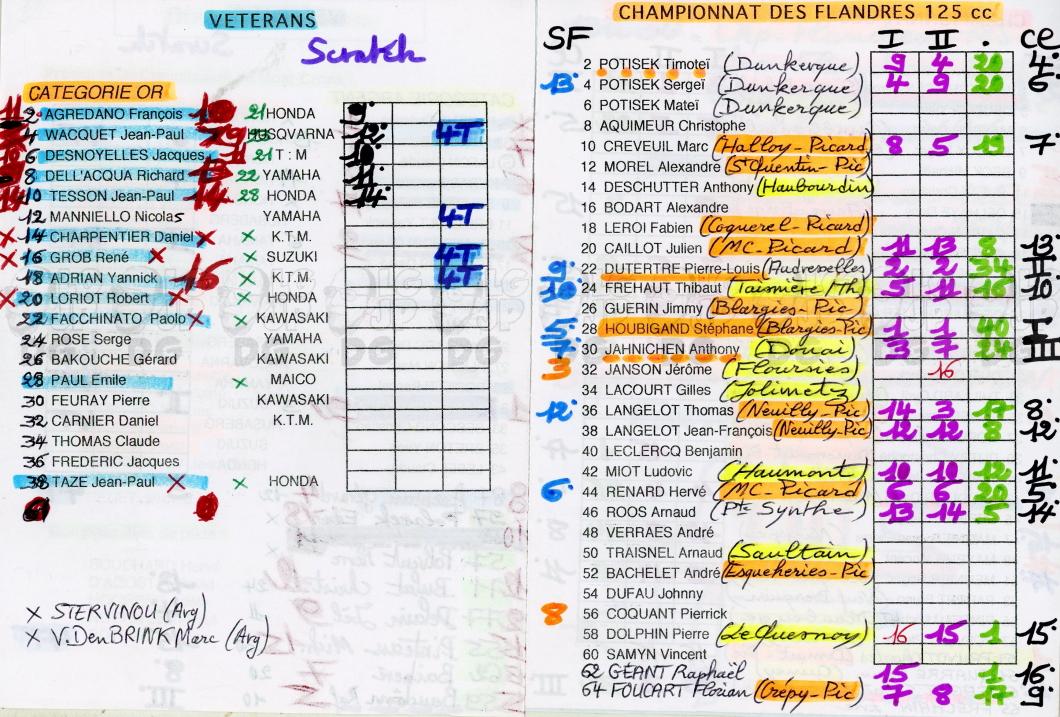 VETERANS
Scratch
CATEGORIE OR
2 AGREDANO François 21 HONDA 9
4 WACQUET Jean-Paul HUSQVARNA 12 4T
6 DESNOYELLES Jacques 21 T : M 10
8 DELL'ACQUA Richard 22 YAMAHA 11
10 TESSON Jean-Paul 14 28 HONDA 14
12 MANNIELLO Nicolas YAMAHA 4T
× 14 CHARPENTIER Daniel × × K.T.M.
× 16 GROB René × × SUZUKI 4T
18 ADRIAN Yannick 16 × K.T.M. 4T
× 20 LORIOT Robert × × HONDA
22 FACCHINATO Paolo × × KAWASAKI
24 ROSE Serge YAMAHA
26 BAKOUCHE Gérard KAWASAKI
28 PAUL Emile × MAICO
30 FEURAY Pierre KAWASAKI
32 CARNIER Daniel K.T.M.
34 THOMAS Claude
36 FREDERIC Jacques
38 TAZE Jean-Paul × × HONDA
× STERVINOU (Arg)
× V.DenBRINK Marc (Arg)
CHAMPIONNAT DES FLANDRES 125 cc
SF I II . ce
2 POTISEK Timoteï (Dunkerque) 9 4 20 4
13 4 POTISEK Sergeï (Dunkerque) 4 9 20 6
6 POTISEK Mateï (Dunkerque)
8 AQUIMEUR Christophe
10 CREVEUIL Marc (Halloy-Picard) 8 5 19 7
12 MOREL Alexandre (St Quentin-Pic)
14 DESCHUTTER Anthony (Haubourdin)
16 BODART Alexandre
18 LEROI Fabien (Coquerel-Picard)
20 CAILLOT Julien (MC-Picard) 11 13 8 13
9 22 DUTERTRE Pierre-Louis (Audreselles) 2 2 34 II
10 24 FREHAUT Thibaut (Taisniere/Hh) 5 11 16 10
26 GUERIN Jimmy (Blargies-Pic)
5 28 HOUBIGAND Stéphane (Blargies-Pic) 1 1 40 I
7 30 JAHNICHEN Anthony (Douai) 3 7 24 III
3 32 JANSON Jérôme (Floursies) 16
34 LACOURT Gilles (Jolimetz)
12 36 LANGELOT Thomas (Neuilly-Pic) 14 3 17 8
38 LANGELOT Jean-François (Neuilly-Pic) 12 12 8 12
40 LECLERCQ Benjamin
42 MIOT Ludovic (Haumont) 10 10 12 11
6 44 RENARD Hervé (MC-Picard) 6 6 20 5
46 ROOS Arnaud (Pte Synthe) 13 14 5 14
48 VERRAES André
50 TRAISNEL Arnaud (Saultain)
52 BACHELET André (Esqueheries-Pic)
54 DUFAU Johnny
8 56 COQUANT Pierrick
58 DOLPHIN Pierre (Le Quesnoy) 16 15 1 15
60 SAMYN Vincent
62 GÉANT Raphaël 15 1 16
64 FOUCART Florian (Crépy-Pic) 7 8 17 9